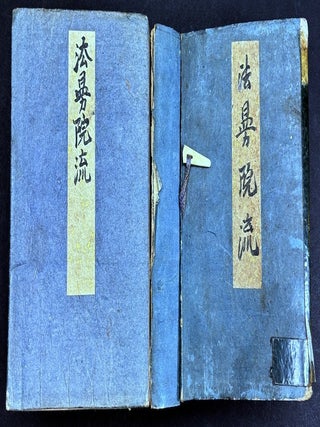 法曼院流
法曼院流